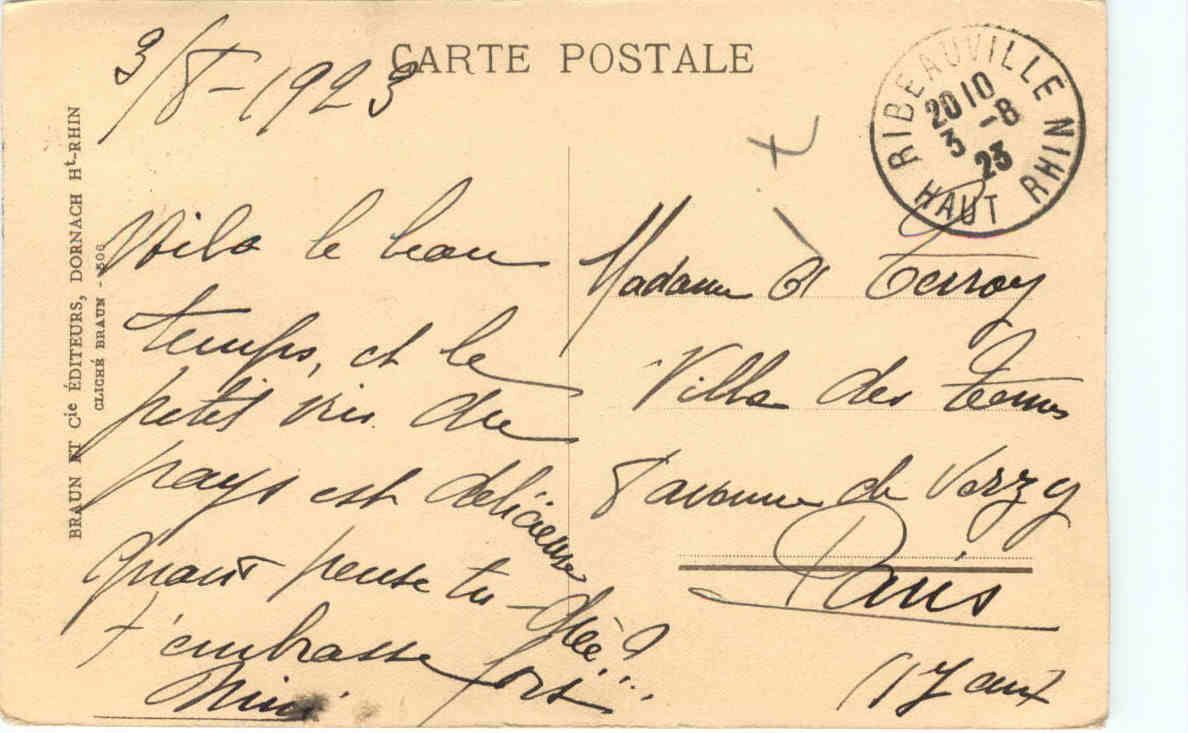 CARTE POSTALE
3/8-1923
RIBEAUVILLE
HAUT RHIN
20 10
3 -8
23
BRAUN ET Cie ÉDITEURS, DORNACH Ht-RHIN
CLICHÉ BRAUN -
Voila le beau
temps, et le
petit vin du
pays est délicieuse
Quand pense tu -
t'embrasse fort
Mimi
Madame
Villa des Ternes
8 avenue de Verzy
Paris
(17